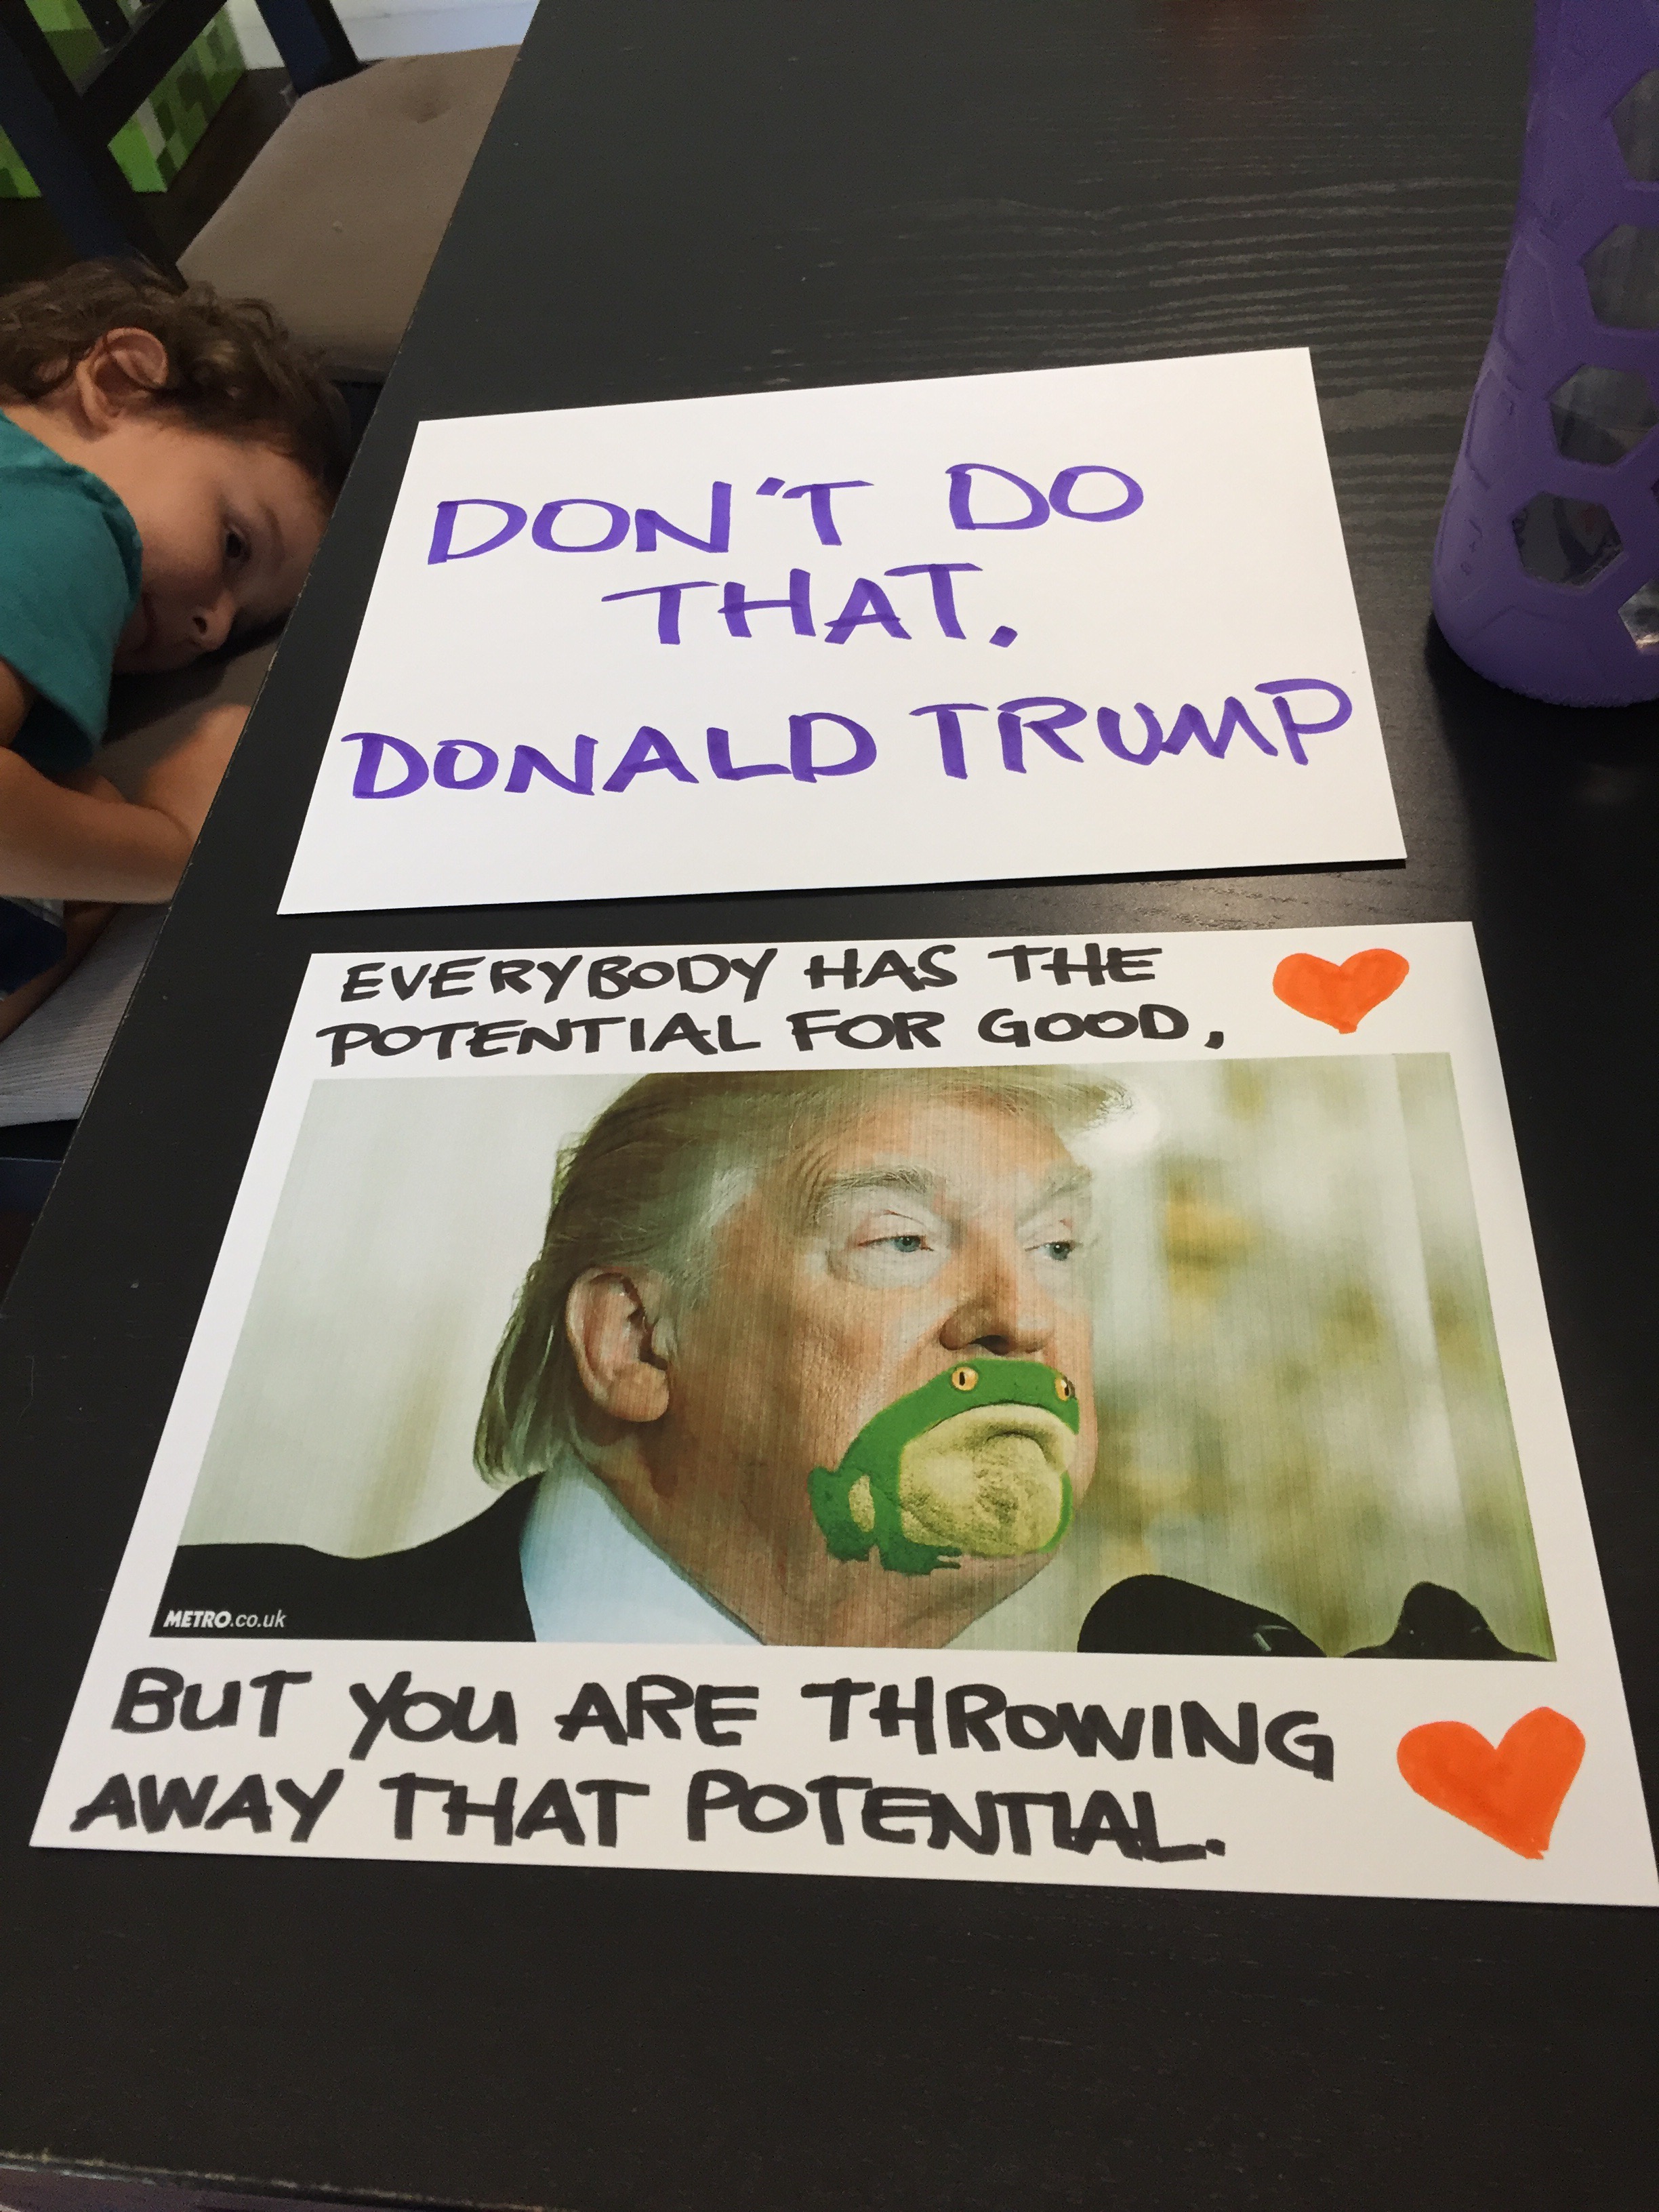 DON'T DO
THAT.
DONALD TRUMP
EVERYBODY HAS THE
POTENTIAL FOR GOOD,
METRO.co.uk
BUT YOU ARE THROWING
AWAY THAT POTENTIAL.